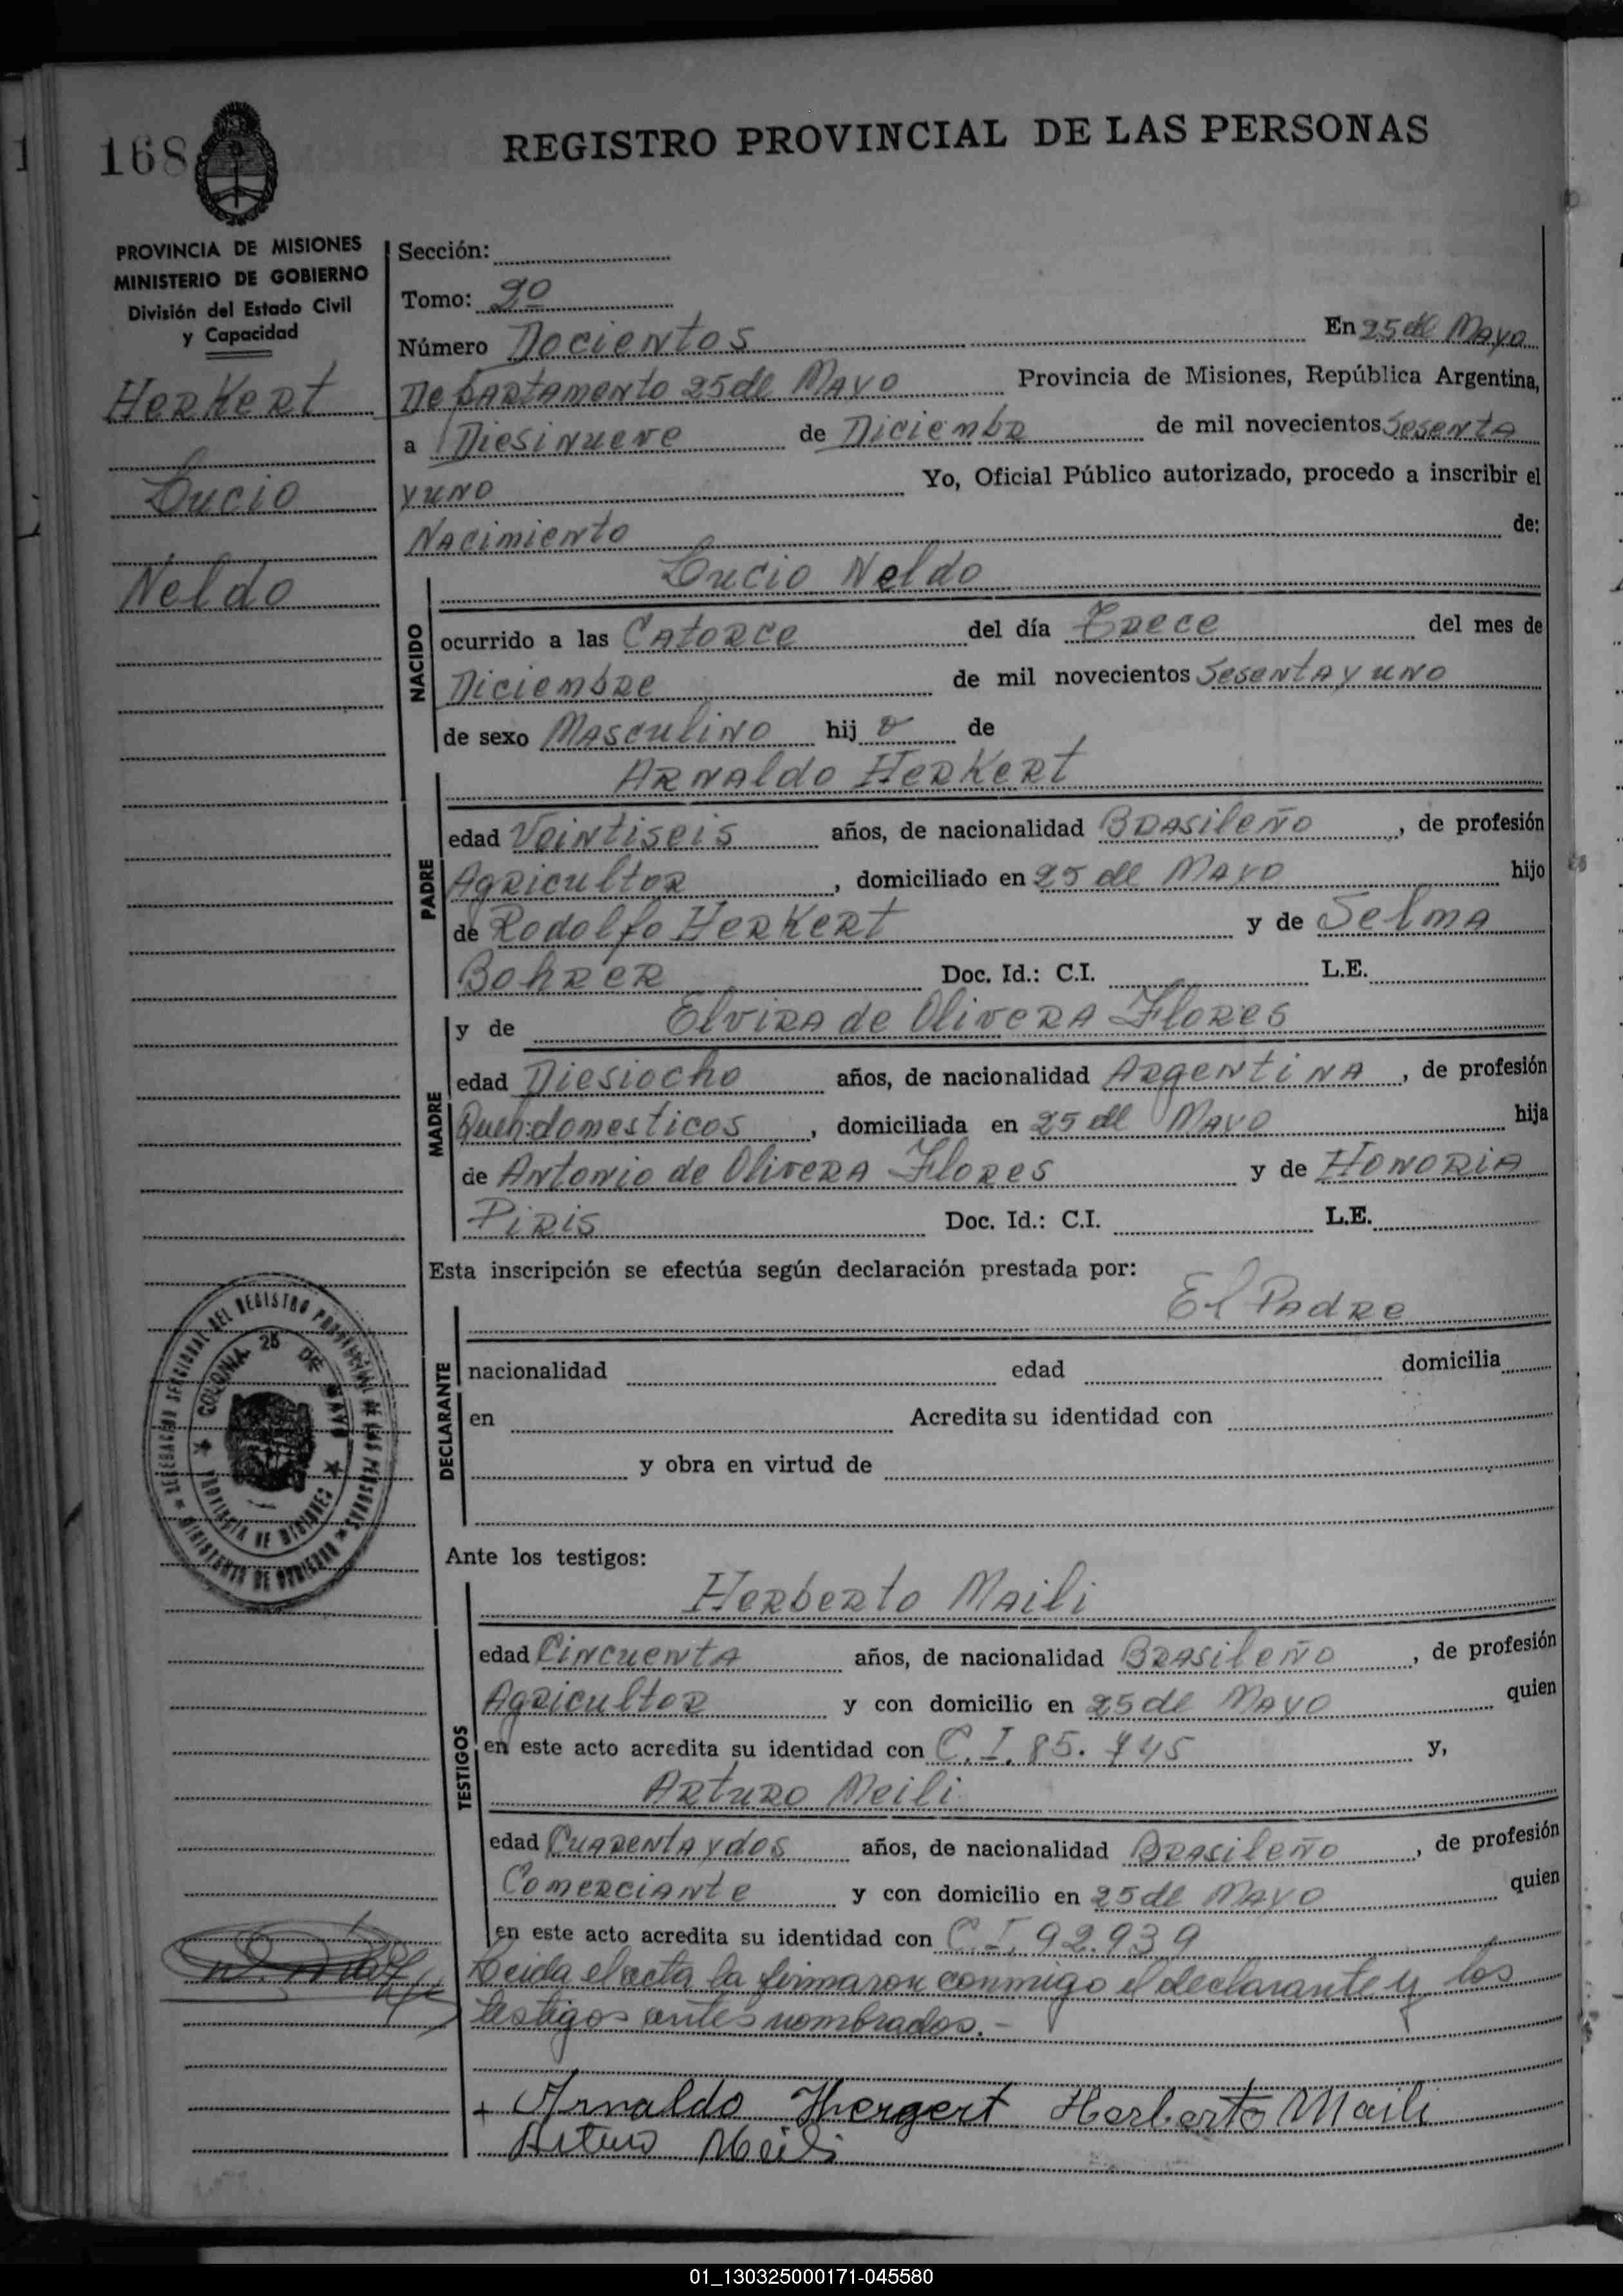 168
REGISTRO PROVINCIAL DE LAS PERSONAS
PROVINCIA DE MISIONES
MINISTERIO DE GOBIERNO
División del Estado Civil
y Capacidad
Herkert
Lucio
Neldo
Sección:
Tomo: 2º
Número Docientos En 25 de Mayo
Departamento 25 de Mayo Provincia de Misiones, República Argentina,
a Diesinueve de Diciembr de mil novecientos Sesenta
y uno Yo, Oficial Público autorizado, procedo a inscribir el
Nacimiento de:
Lucio Neldo
NACIDO
ocurrido a las Catorce del día Trece del mes de
Diciembre de mil novecientos Sesenta y uno
de sexo Masculino hij o de
Arnaldo Herkert
PADRE
edad Veintiseis años, de nacionalidad Brasileño, de profesión
Agricultor, domiciliado en 25 de Mayo hijo
de Rodolfo Herkert y de Selma
Bohrer Doc. Id.: C.I. L.E.
y de Elvira de Olivera Flores
MADRE
edad Diesiocho años, de nacionalidad Argentina, de profesión
Queh:domesticos, domiciliada en 25 de Mayo hija
de Antonio de Olivera Flores y de Honoria
Piris Doc. Id.: C.I. L.E.
Esta inscripción se efectúa según declaración prestada por:
El Padre
DECLARANTE
nacionalidad edad domicilia
en Acredita su identidad con
y obra en virtud de
DELEGACION SECCIONAL DEL REGISTRO PROVINCIAL DE LAS PERSONAS
MINISTERIO DE GOBIERNO
COLONIA 25 DE MAYO
PROVINCIA DE MISIONES
Ante los testigos:
Herberto Maili
TESTIGOS
edad Cincuenta años, de nacionalidad Brasileño, de profesión
Agricultor y con domicilio en 25 de Mayo quien
en este acto acredita su identidad con C.I. 85.745 y,
Arturo Meili
edad Cuarenta y dos años, de nacionalidad Brasileño, de profesión
Comerciante y con domicilio en 25 de Mayo quien
en este acto acredita su identidad con C.I. 92.939
Leida el acta la firmaron conmigo el declarante y los
testigos antes nombrados.-
+ Arnaldo Hergert Herberto Maili
Arturo Meili
01_130325000171-045580